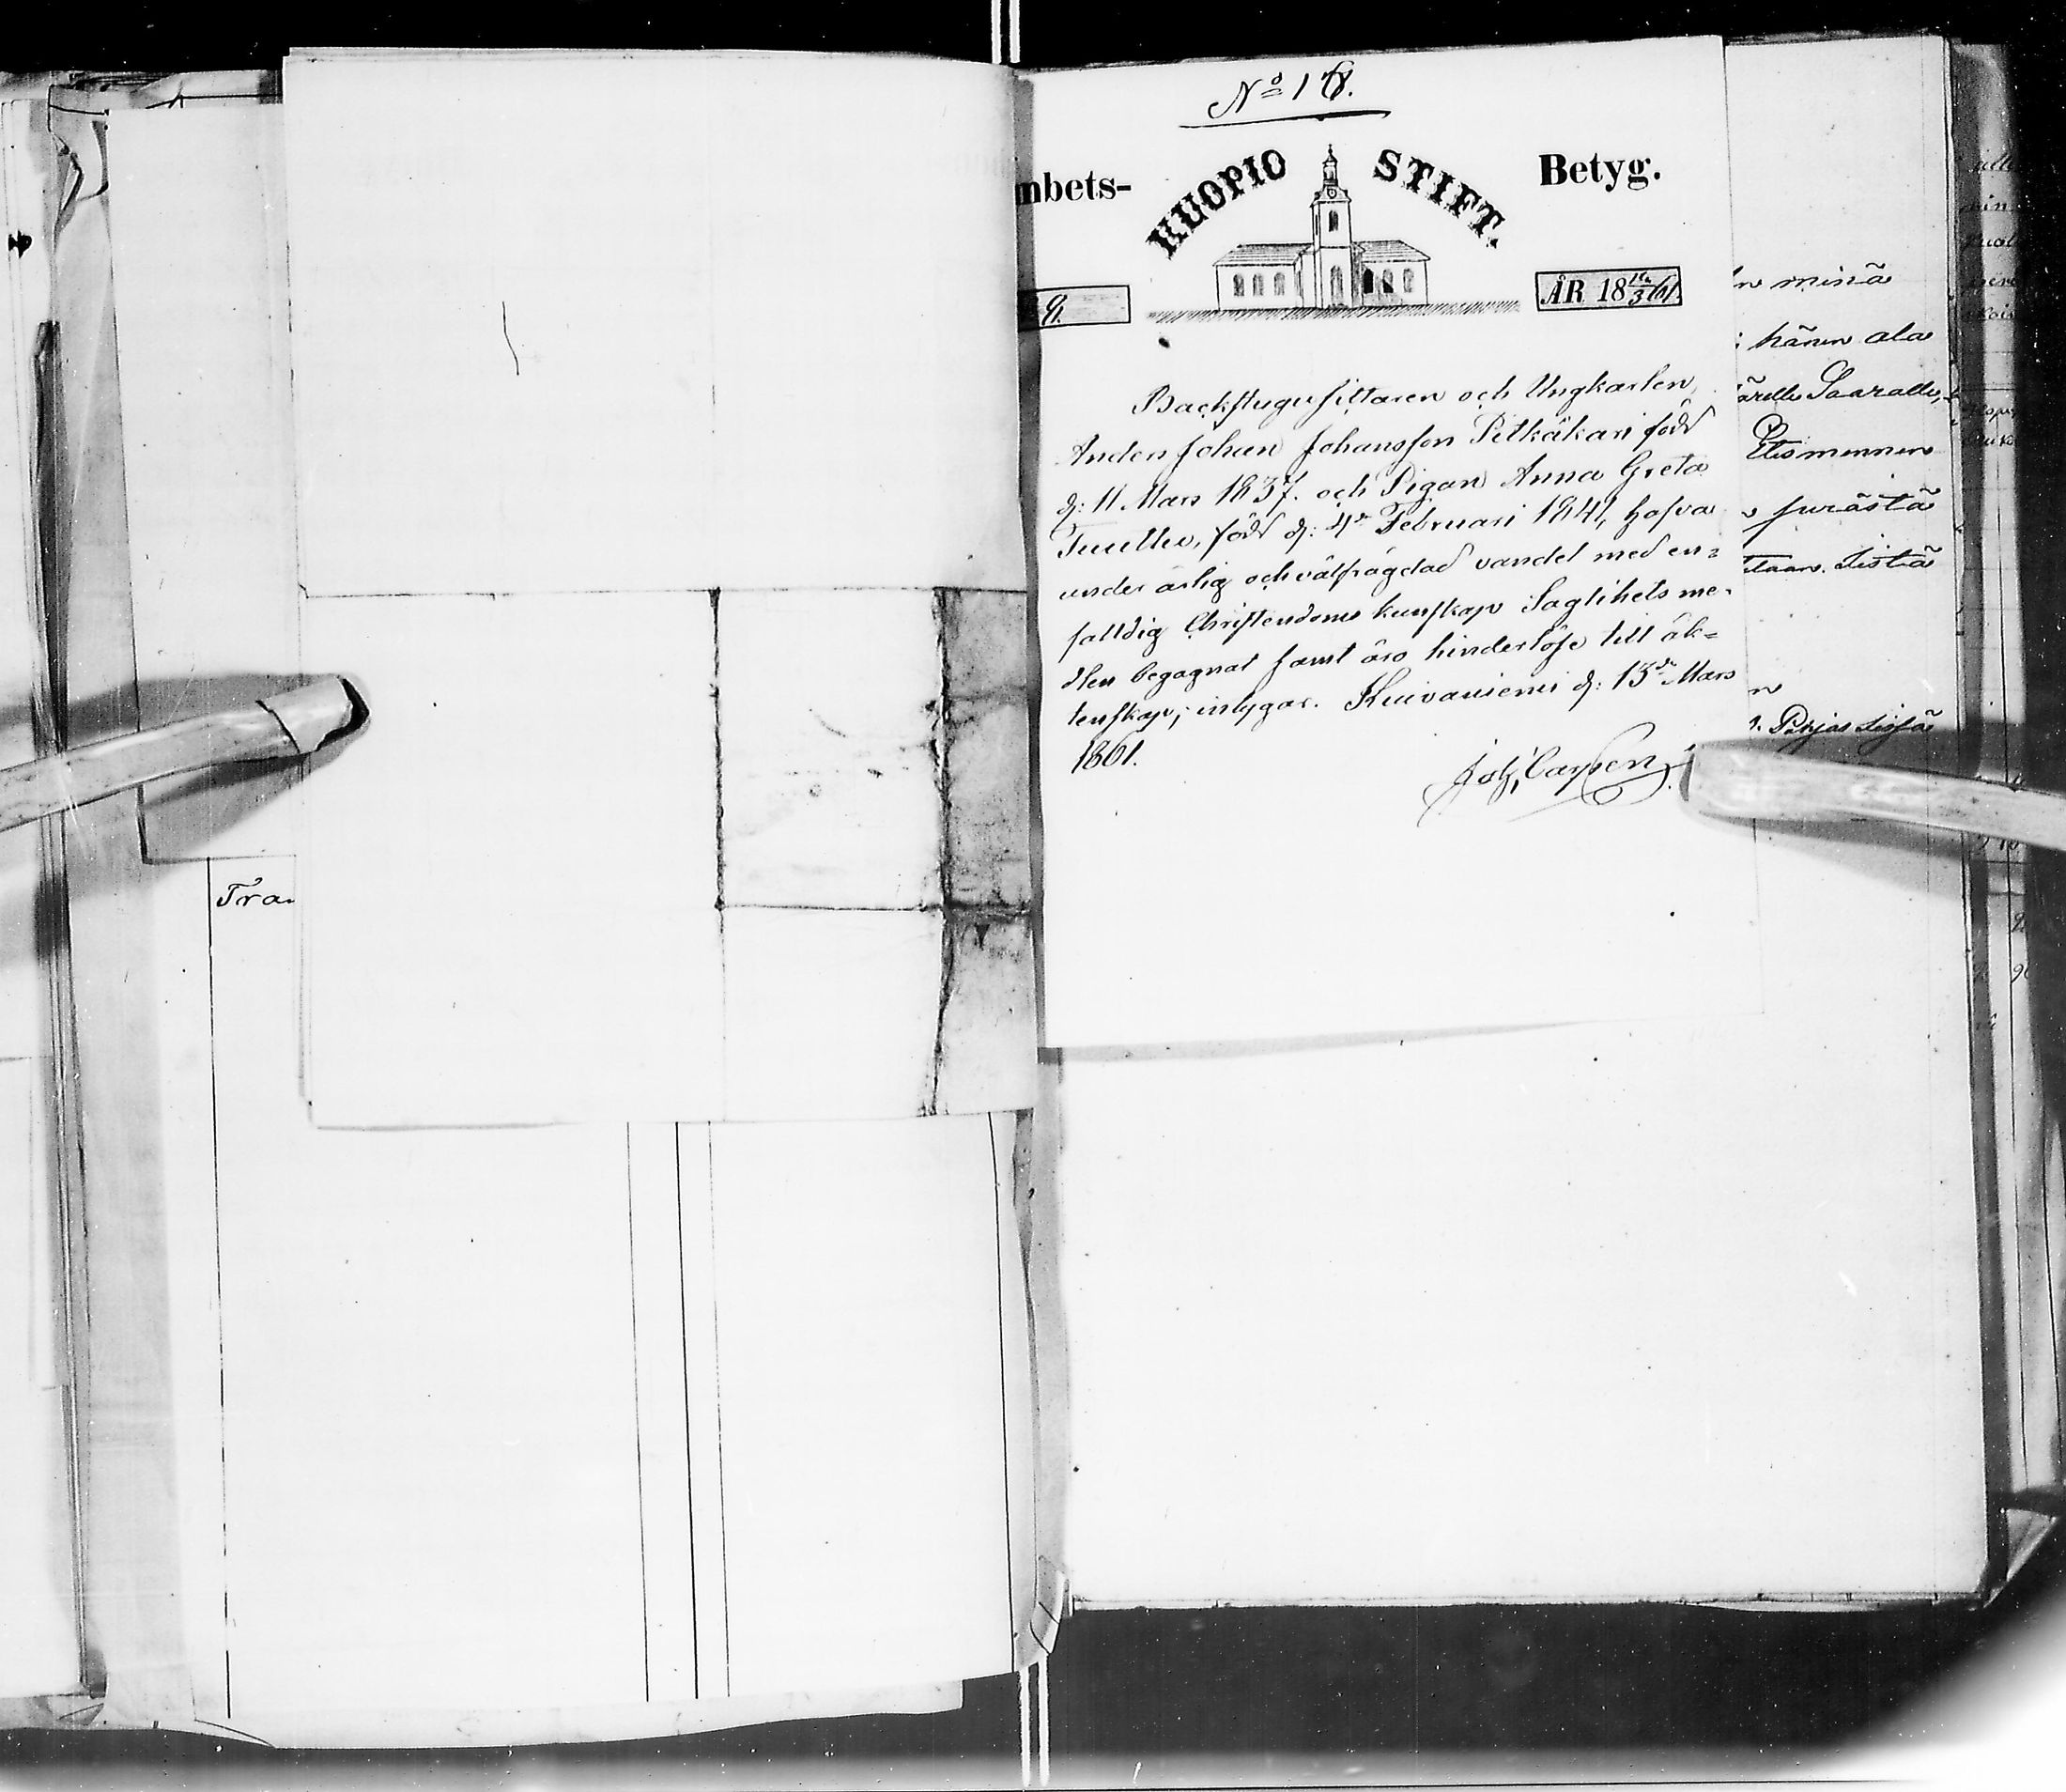 Tra
No 18.
mbets- KUOPIO STIFT. Betyg.
9. ÅR 18 14/3 61.
Backstugusittaren och Ungkarlen
Anders Johan Johansson Pitkäkari född
d: 11 Mars 1837. och Pigan Anna Greta
född d: 4de Februari 1841, hafva
under ärlig och välfrägdad vandel med en-
faldig Christendoms kunskap Saglihets me-
dlen begagnat samt äro hinderlöse till äk-
tenskap; intygar. Kuivaniemi d: 13de Mars
1861.
Joh. Carlsen
minä
hänen ala
Saaralle,
perästä
Tistä
n